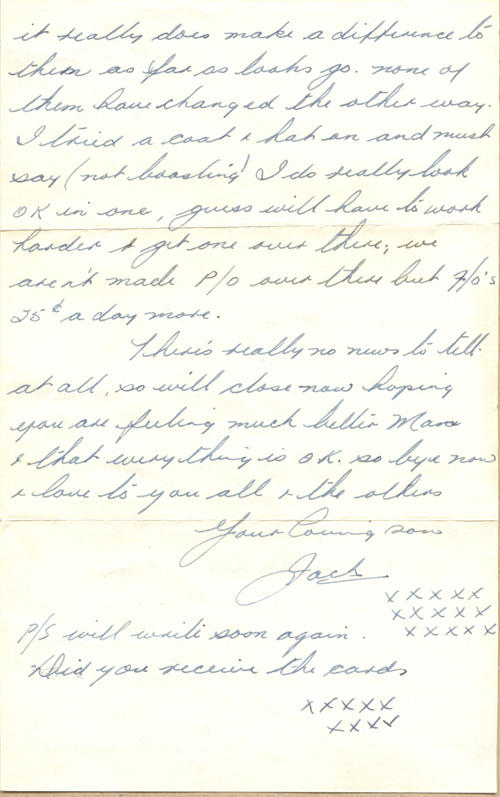 it really does make a difference to
them as far as looks go. none of
them have changed the other way.
I tried a coat & hat on and must
say (not boasting) I do really look
OK in one, guess will have to work
harder & get one over there; we
aren't made P/O over there but F/O's
25¢ a day more.
There's really no news to tell
at all, so will close now hoping
you are feeling much better Mam
& that everything is OK. so bye now
& love to you all & the others
Your loving son
Jack
x x x x x
x x x x x
x x x x x
P/S will write soon again.
Did you receive the cards
x x x x x
x x x x